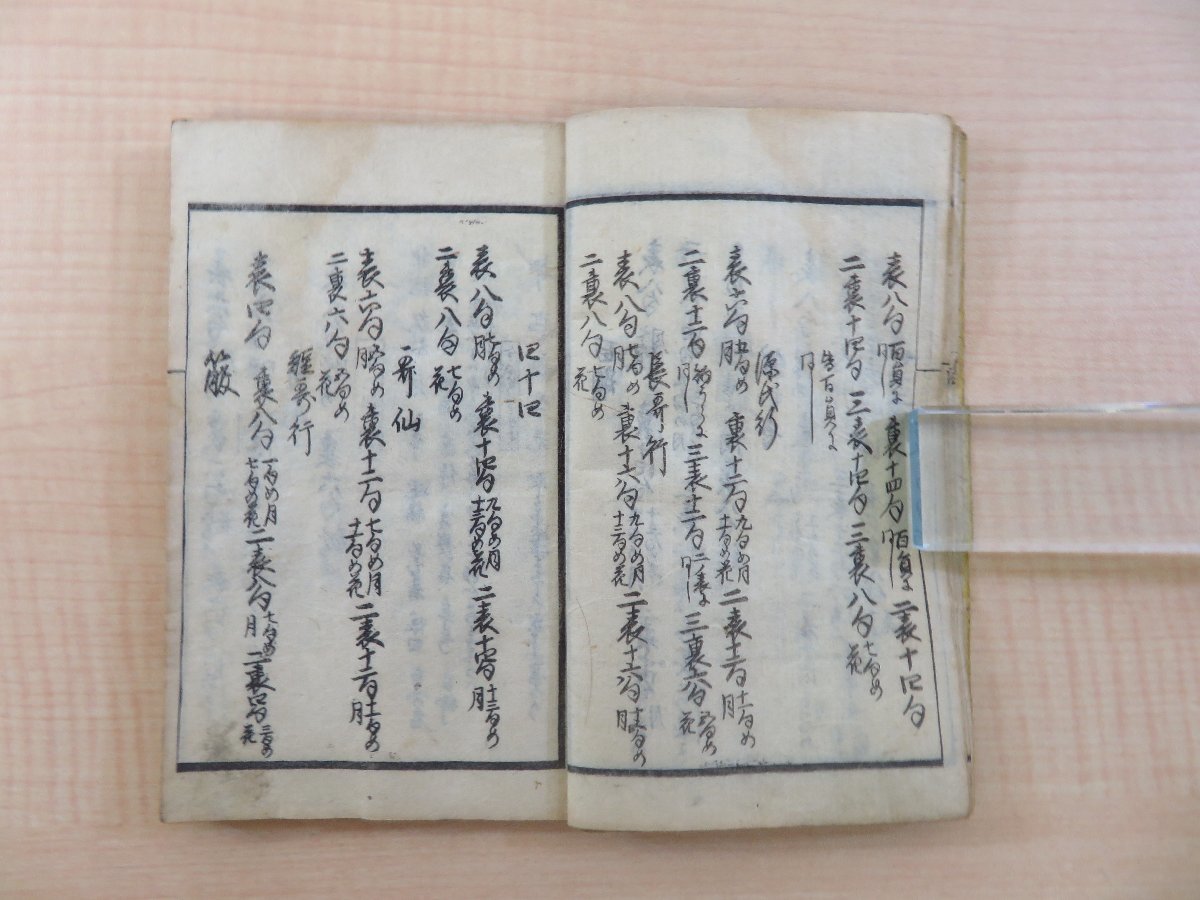 表八句 月 百員に 裏十四句 百員に 月 二表十四句
二裏十四句 百員に 三表十四句 三裏八句 七句め 花
源氏行
表六句 五句め 月 裏十二句 九句め月 十一句め花 二表十二句 十一句め 月
二裏十二句 三表十二句 二表に 三裏六句 五句め 花
長哥行
表八句 七句め 月 裏十六句 九句め月 十三句め花 二表十六句 月
二裏八句 七句め 花
四十四
表八句 七句め 月 裏十四句 九句め月 十三句め花 二表十四句 十三句め 月
二裏八句 七句め 花
哥仙
表六句 五句め 月 裏十二句 七句め月 十一句め花 二表十二句 十一句め 月
二裏六句 五句め 花
短哥行
表四句 裏八句 一句め月 七句め花 二表八句 七句め 月 二裏四句 三句め 花
箙